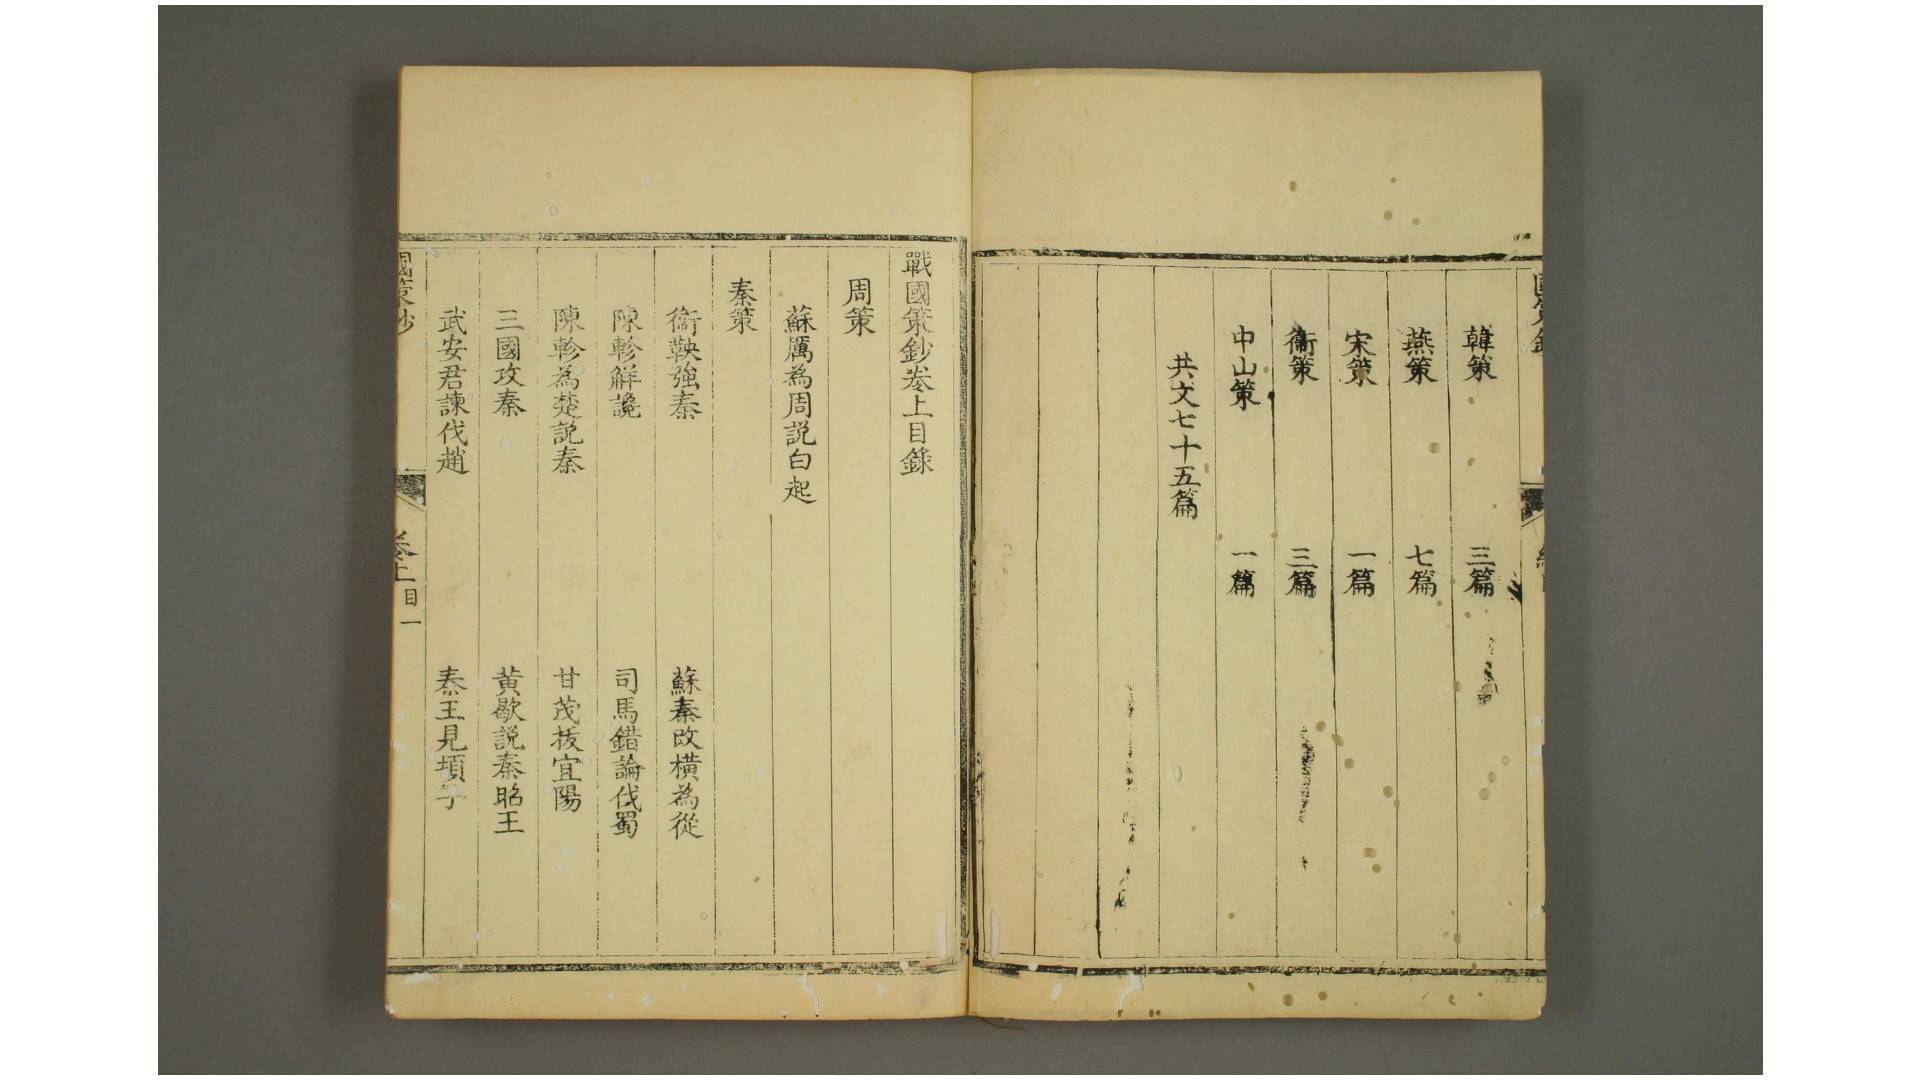 韓策 三篇
燕策 七篇
宋策 一篇
衞策 三篇
中山策 一篇
共文七十五篇
戰國策鈔卷上目錄
周策
蘇厲為周説白起
秦策
衞鞅強秦 蘇秦改橫為從
陳軫觧讒 司馬錯論伐蜀
陳軫為楚説秦 甘茂拔宜陽
三國攻秦 黃歇説秦昭王
武安君諫伐趙 秦王見頓子
國策鈔 卷上目一